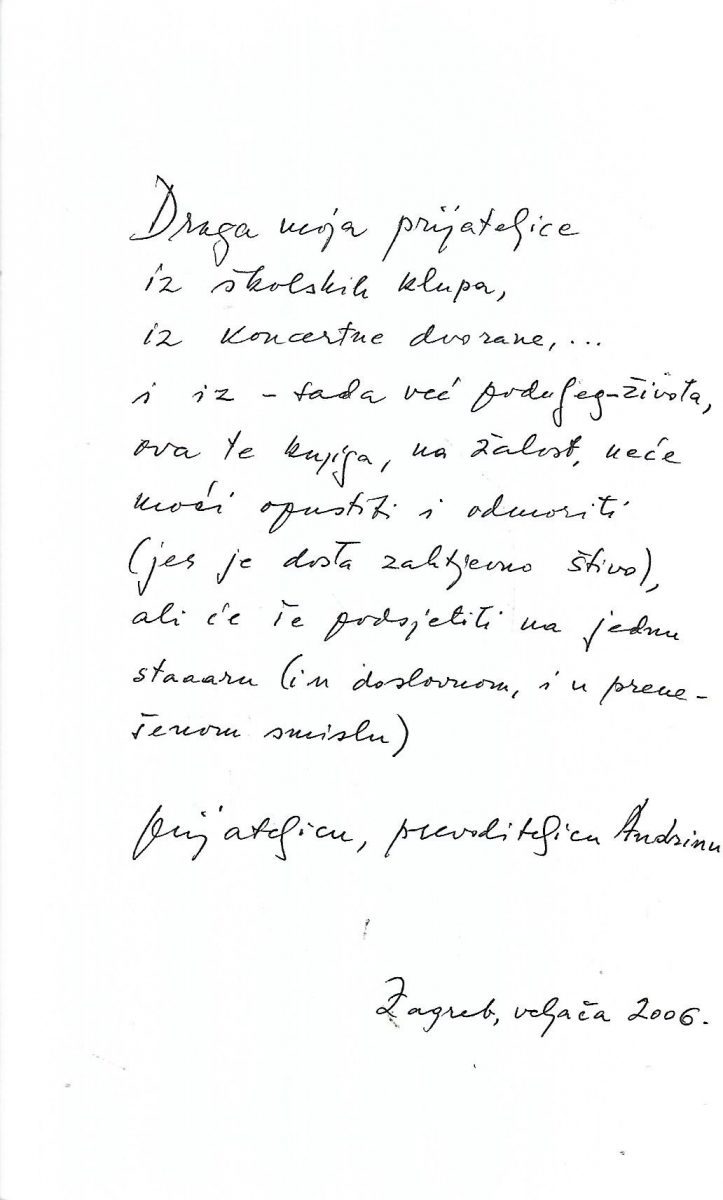 Draga moja prijateljice
iz školskih klupa,
iz koncertne dvorane,...
i iz - sada već poduljeg-života,
ova te knjiga, na žalost, neće
moći opustiti i odmoriti
(jer je dosta zahtjevno štivo),
ali će te podsjetiti na jednu
staaaru (i u doslovnom, i u prene-
šenom smislu)
prijateljicu, prevoditeljicu
Zagreb, veljača 2006.